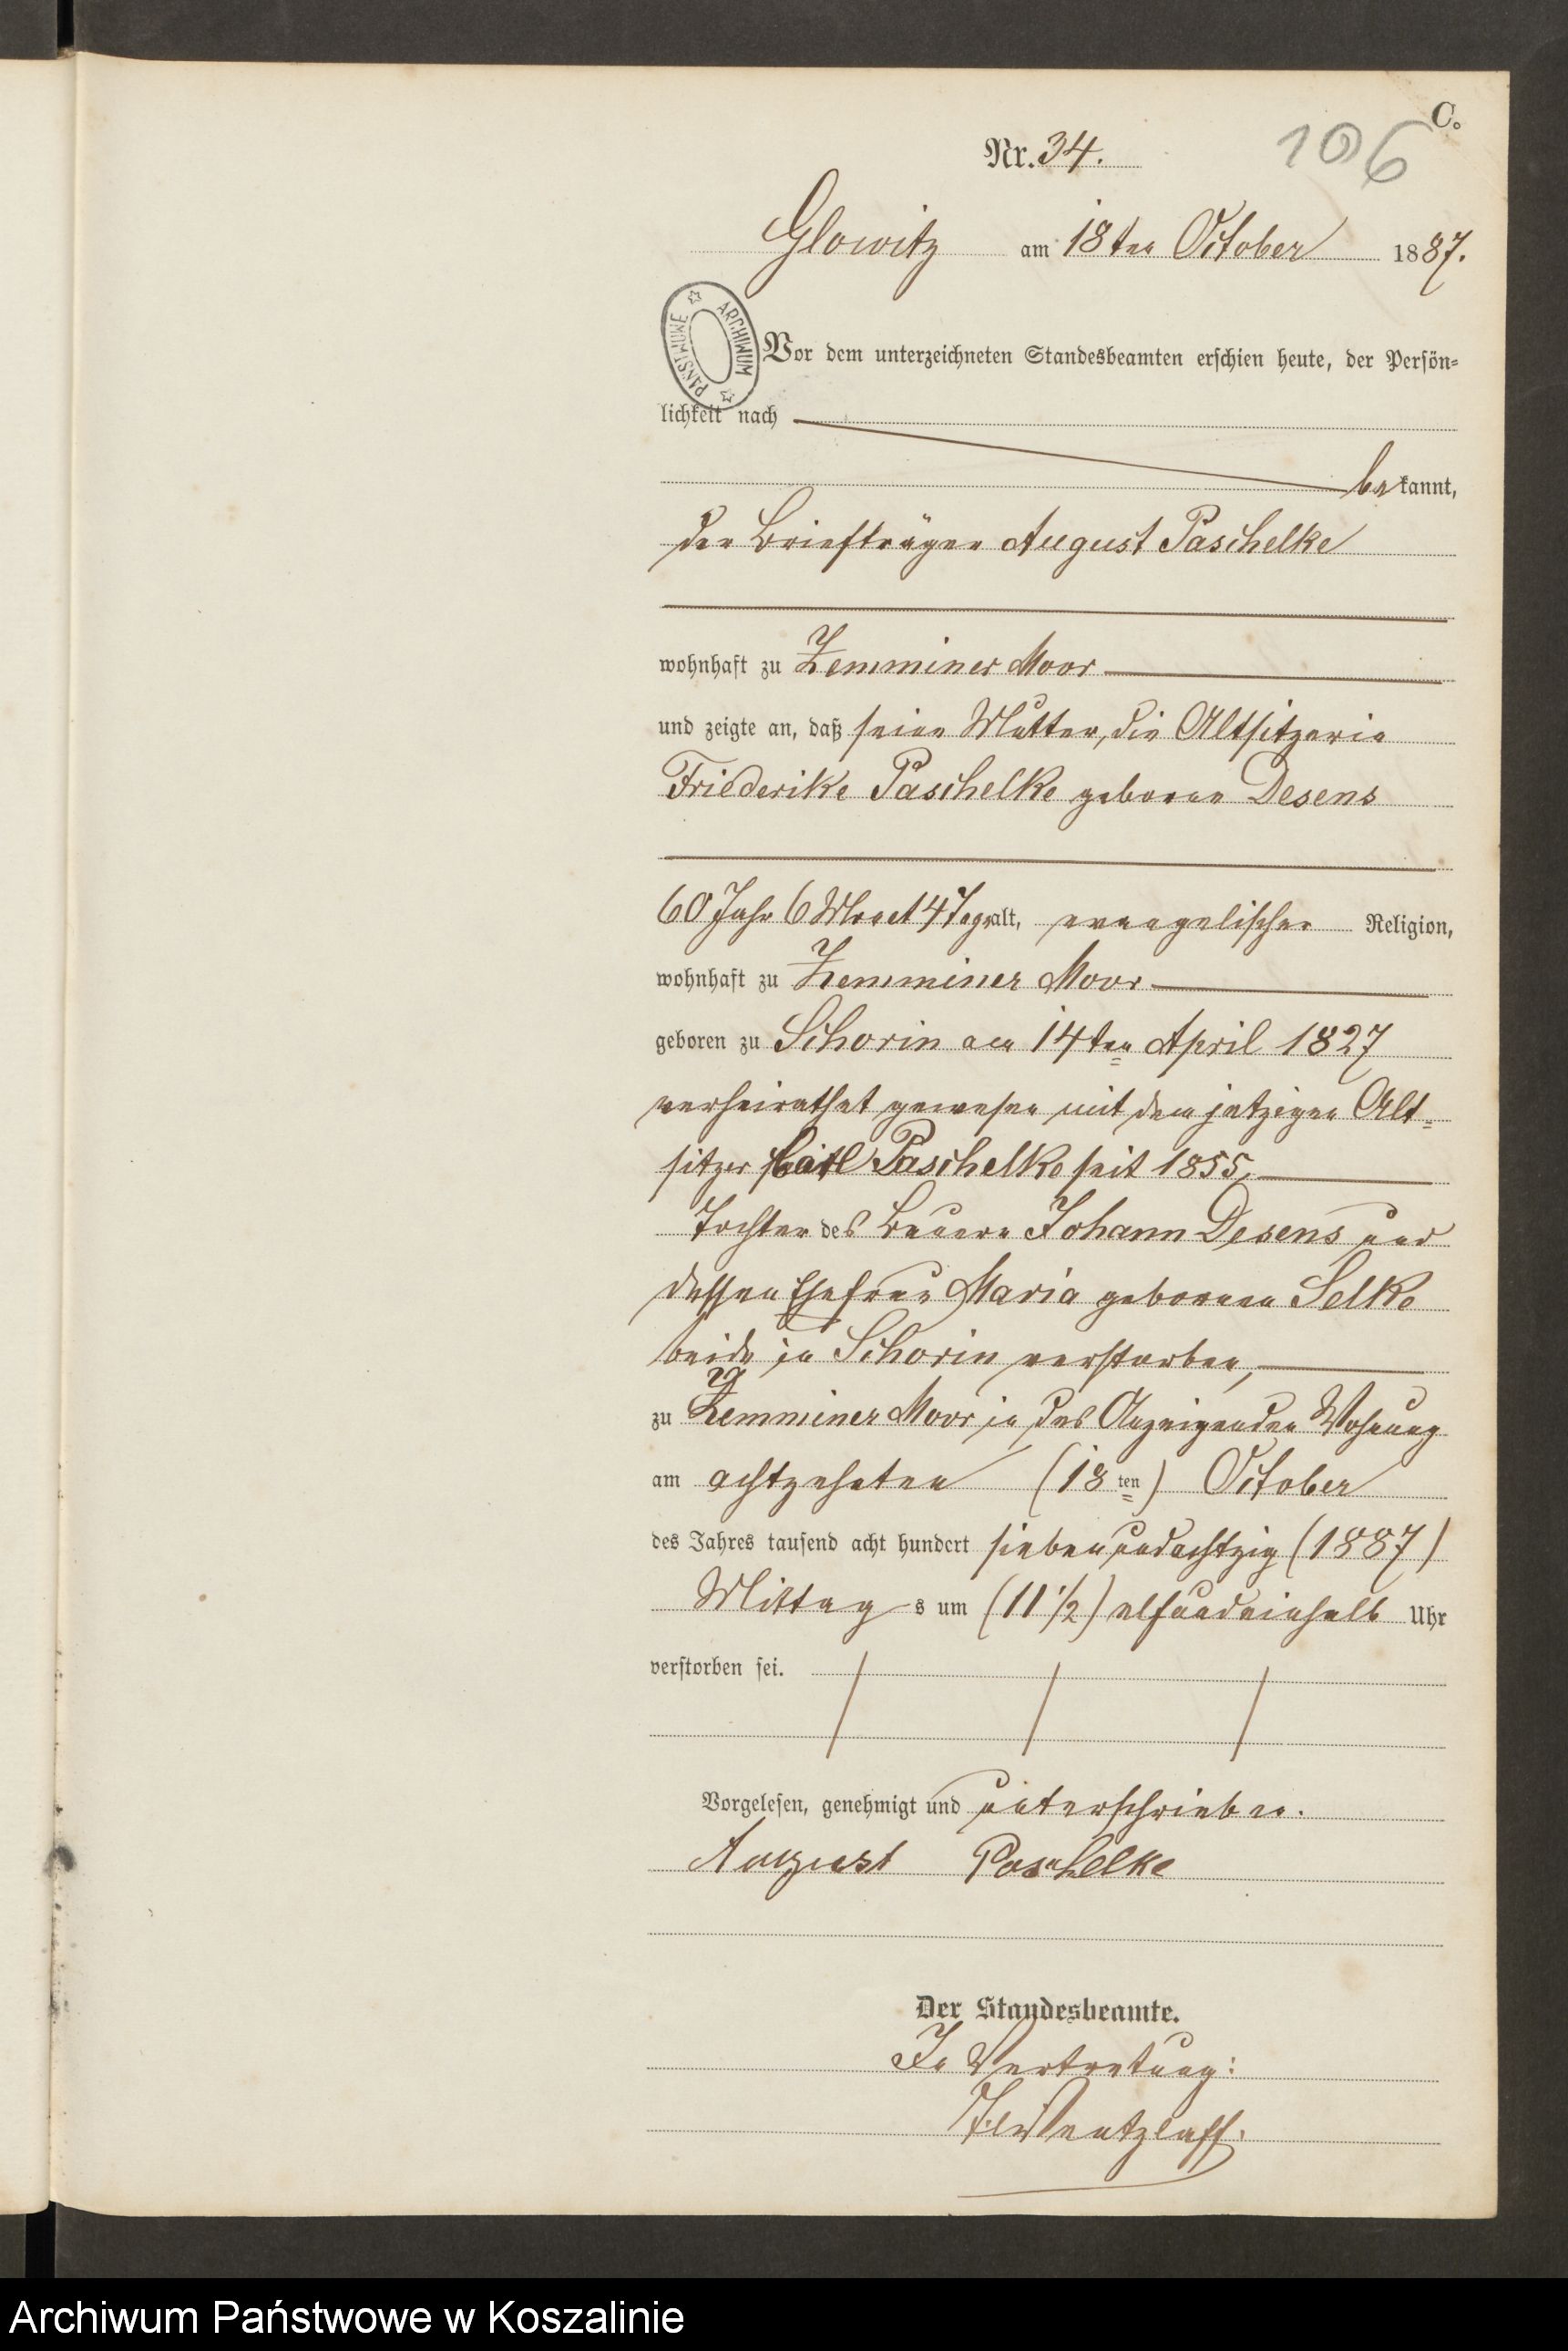 C.
106
Nr. 34.
Glowitz am 18ten October 1887.
ARCHIWUM PAŃSTWOWE
Vor dem unterzeichneten Standesbeamten erschien heute, der Persön-
lichkeit nach
bekannt,
der Briefträger August Paschelke
wohnhaft zu Zemminer Moor
und zeigte an, daß seine Mutter, die Altsitzerin
Friederike Paschelke geborne Desens
60 Jahr 6 Monat 4 Tage alt, evangelischer Religion,
wohnhaft zu Zemminer Moor
geboren zu Schorin am 14ten April 1827
verheirathet gewesen mit dem jetzigen Alt-
sitzer Carl Paschelke seit 1855,
Tochter des Bauern Johann Desens und
dessen Ehefrau Maria gebornen Selke
beide in Schorin verstorben,
zu Zemminer Moor in des Anzeigenden Wohnung
am achtzehnten (18ten) October
des Jahres tausend acht hundert siebenundachtzig (1887)
Mittags um (11 1/2) elfundeinhalb Uhr
verstorben sei.
Vorgelesen, genehmigt und unterschrieben.
August Paschelke
Der Standesbeamte.
In Vertretung:
Wentzlaff.
Archiwum Państwowe w Koszalinie